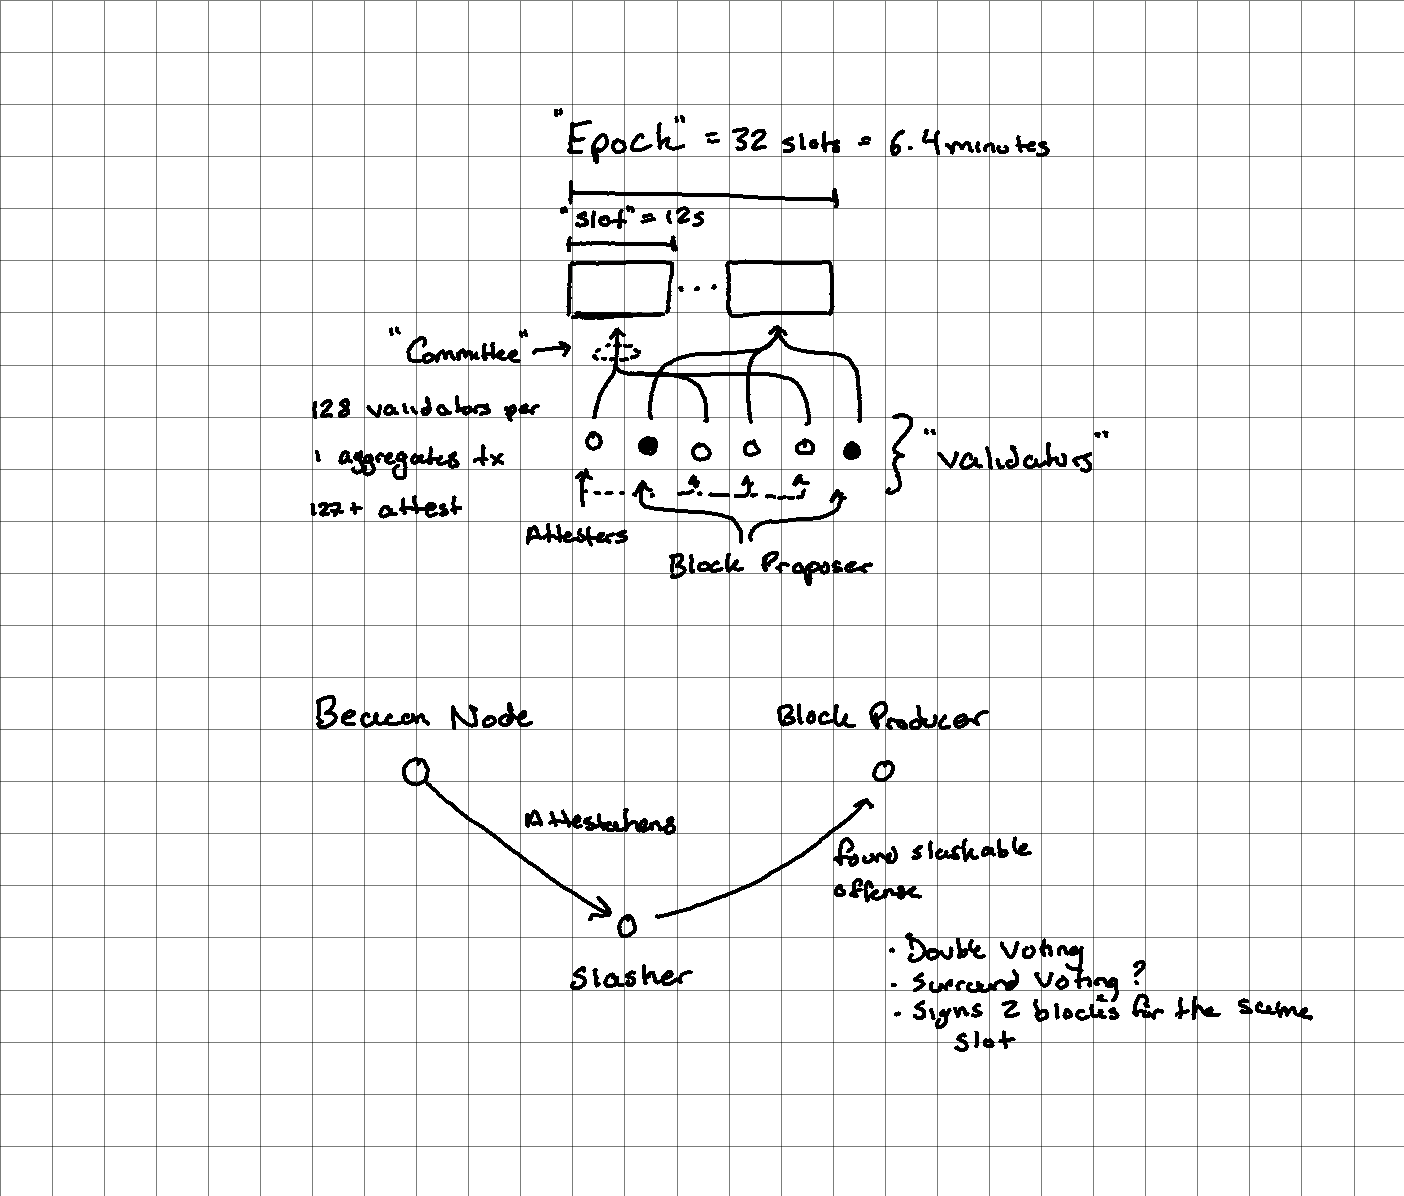 "Epoch" = 32 slots = 6.4 minutes
"slot" = 12s
...
"Committee"
128 validators per
1 aggregates tx
127+ attest
"validators"
Attesters
Block Proposer
Beacon Node
Block Producer
Attestations
found slashable
offense
Slasher
· Double Voting
· Surround Voting?
· Signs 2 blocks for the same
slot